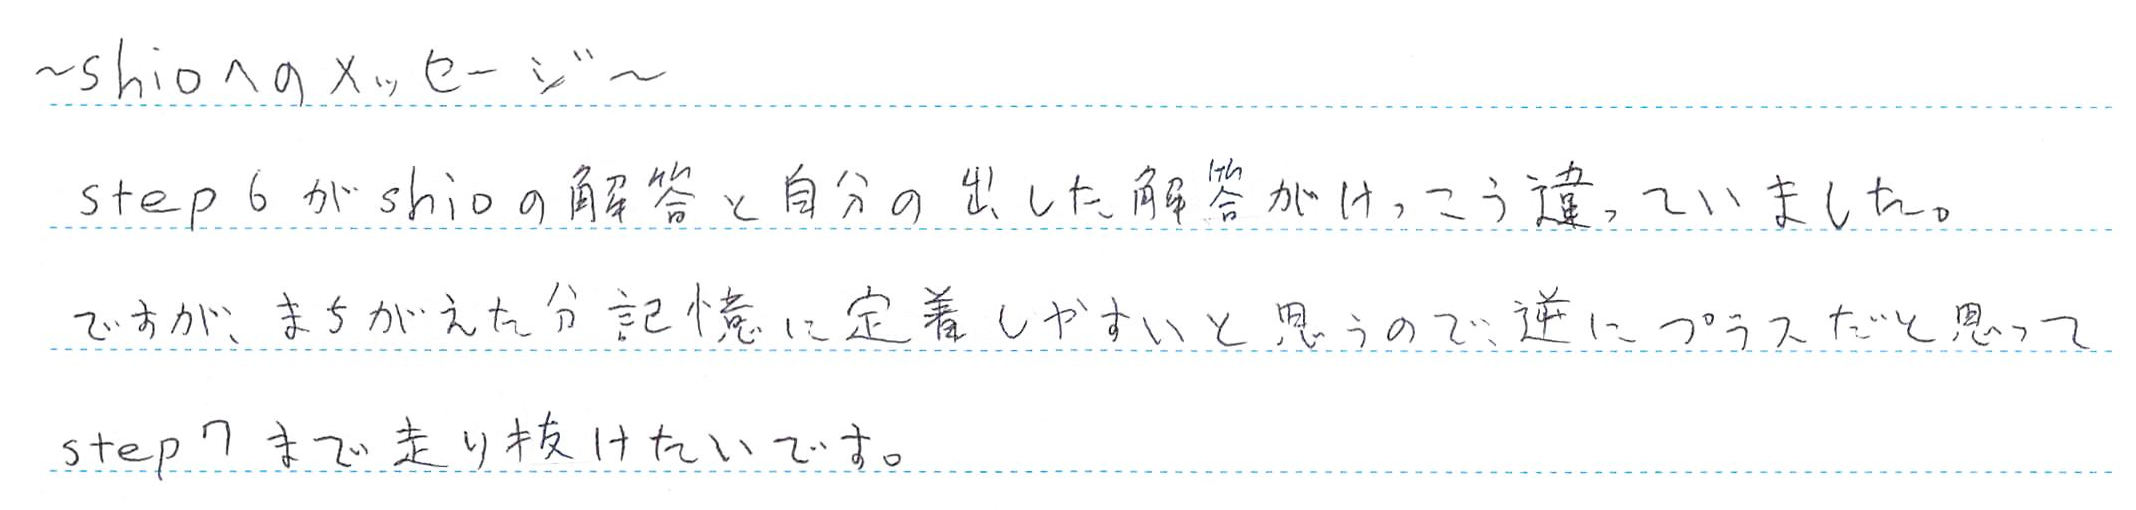 ～shioへのメッセージ～
step6がshioの解答と自分の出した解答がけっこう違っていました。
ですが、まちがえた分記憶に定着しやすいと思うので、逆にプラスだと思って
step7まで走り抜けたいです。